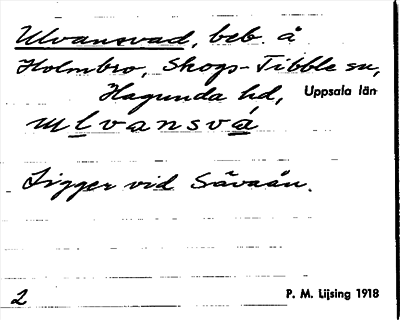 Ulvansvad, beb. å
Holmbro, Skogs-Tibble sn,
Hagunda hd, Uppsala län
ulvansvá
Ligger vid Sävaån.
2 P. M. Lijsing 1918